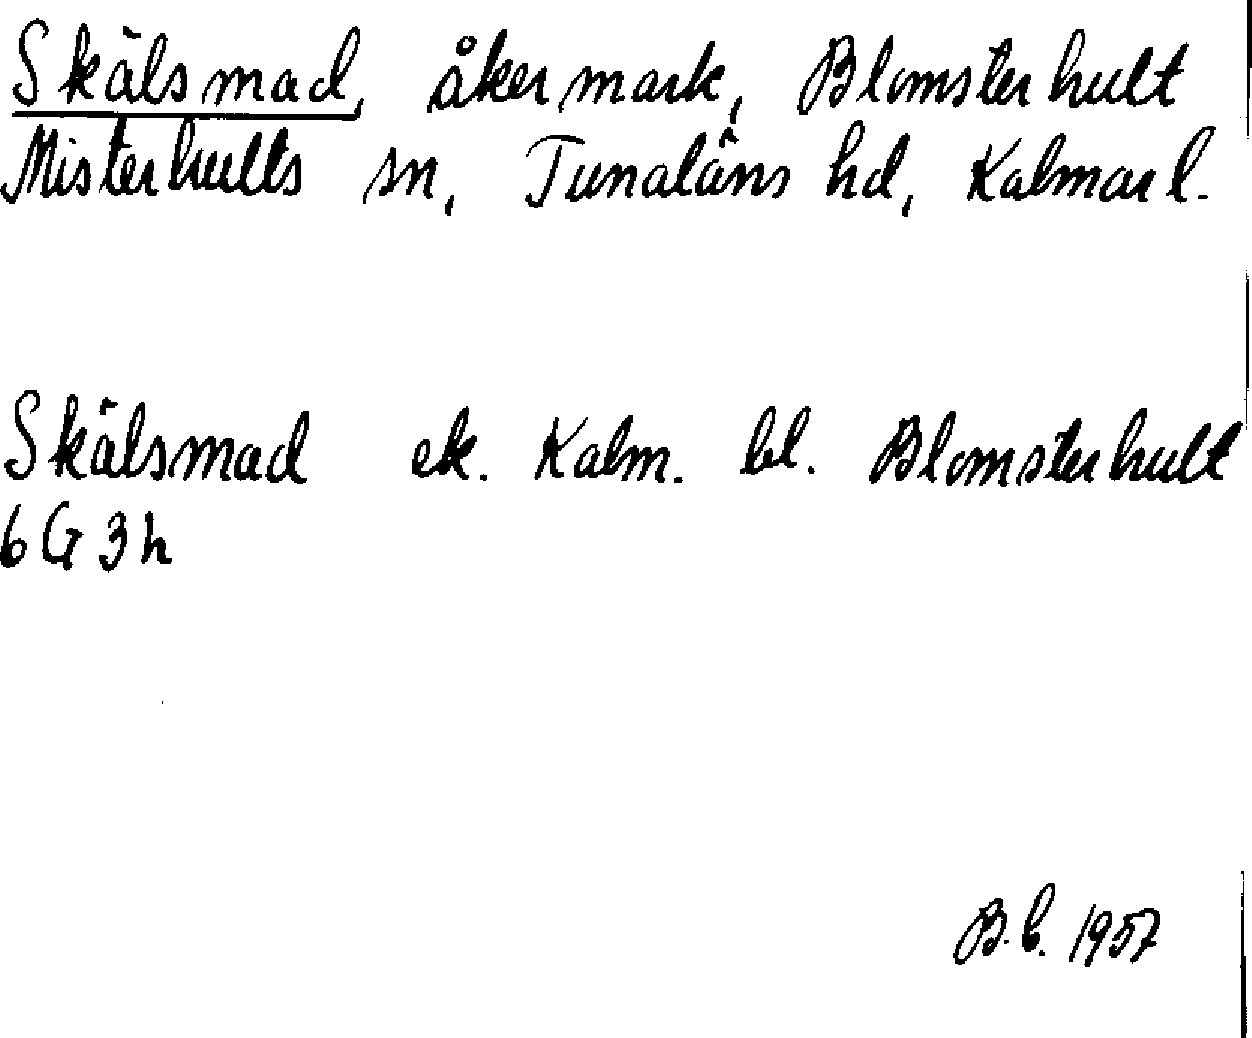 Skälsmad, åkermark, Blomsterhult
Misterhults sn, Tunaläns hd, Kalmar l.
Skälsmad ek. Kalm. bl. Blomsterhult
6G3h
B.L. 1957